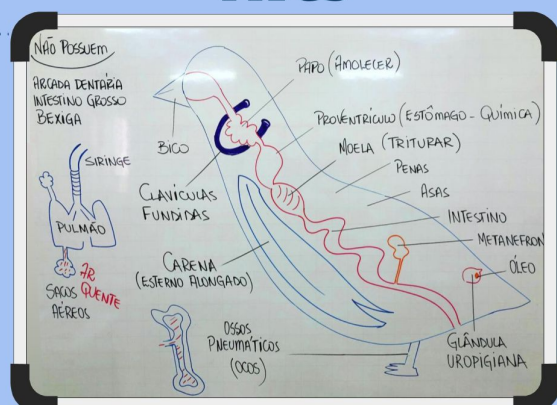 NÃO POSSUEM
ARCADA DENTÁRIA
INTESTINO GROSSO
BEXIGA
SIRINGE
PULMÃO
SACOS
AÉREOS
AR
QUENTE
BICO
CLAVÍCULAS
FUNDIDAS
CARENA
(ESTERNO ALONGADO)
OSSOS
PNEUMÁTICOS
(OCOS)
PAPO (AMOLECER)
PROVENTRÍCULO (ESTÔMAGO - QUÍMICA)
MOELA (TRITURAR)
PENAS
ASAS
INTESTINO
METANEFRON
ÓLEO
GLÂNDULA
UROPIGIANA